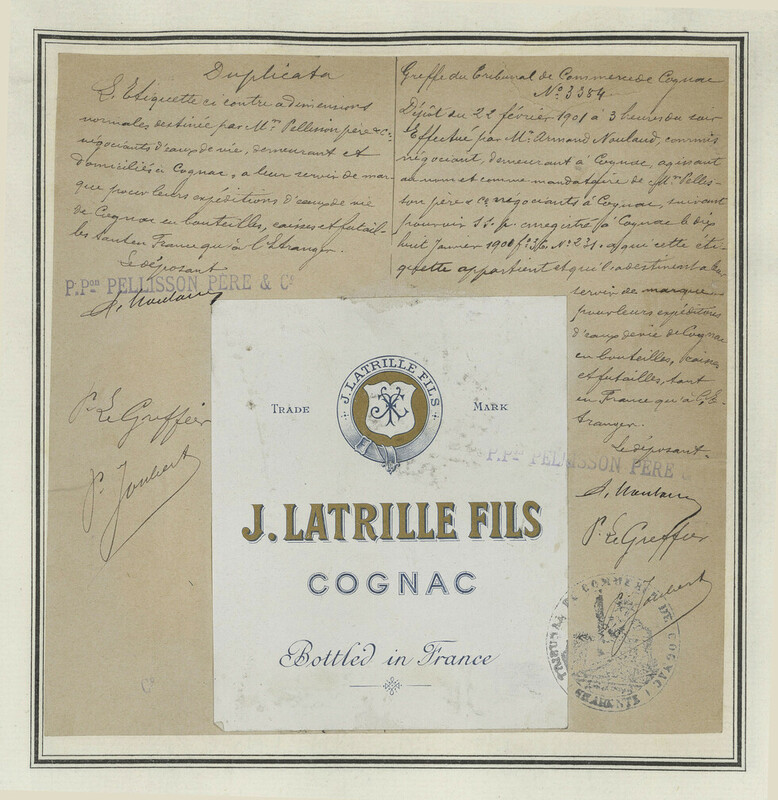 Duplicata
L'Etiquette ci contre a dimensions
normales destinée par Mrs Pellisson père & Cie
négociants d'eaux de vie, demeurant et
domiciliés à Cognac, a leur servir de mar-
que pour leurs expéditions d'eaux de vie
de Cognac en bouteilles, caisses et futail-
les tant en France qu'à l'Etranger.
Le déposant
P. Pon PELLISSON PÈRE & Cie
A. Noulaud
P. Le Greffier
P. Joubert
Greffe du Tribunal de Commerce de Cognac
No 3384
Dépôt du 22 février 1901 à 3 heures du soir
Effectué par Mr Armand Noulaud, commis
négociant, demeurant à Cognac, agissant
au nom et comme mandataire de Mrs Pellis-
son père & Cie négociants à Cognac, suivant
pouvoir s. s. p. enregistré à Cognac le dix
huit janvier 1901 No 231, a que cette éti-
quette appartient et qu'il a destinent a leur
servir de marque
pour leurs expéditions
d'eaux de vie de Cognac
en bouteilles, caisses
et futailles, tant
en France qu'à l'E-
tranger.
Le déposant.
P. Pon PELLISSON PÈRE &
A. Noulaud
P. Le Greffier
Joubert
TRIBUNAL DE COMMERCE DE COGNAC
CHARENTE
J. LATRILLE FILS
TRADE MARK
J. LATRILLE FILS
COGNAC
Bottled in France